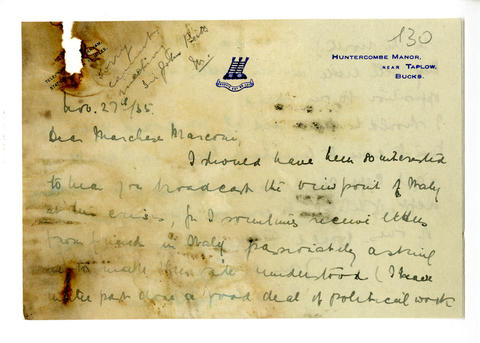 130
HUNTERCOMBE MANOR,
NEAR TAPLOW,
BUCKS.
Sorry
cannot
Sir John
Nov. 27th/35.
Dear Marchese Marconi,
I should have been so interested
to hear you broadcast the viewpoint of Italy
at this crisis, for I sometimes receive letters
from friends in Italy passionately asking
me to make their side understood (I have
in the past done a good deal of political work